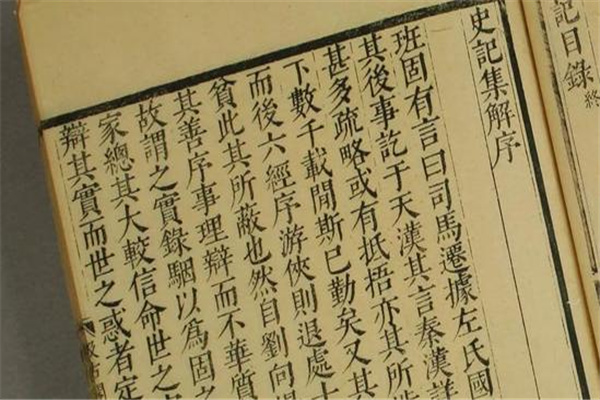 記目錄終
史記集解序
班固有言曰司馬遷據左氏國
其後事訖于天漢其言秦漢詳
甚多疏略或有抵捂亦其所
下數千載閒斯已勤矣又其
而後六經序游俠則退處士
貧此其所蔽也然自劉向
其善序事理辯而不華質
故謂之實錄駰以爲固之
家總其大較信命世之
辯其實而世之惑者定